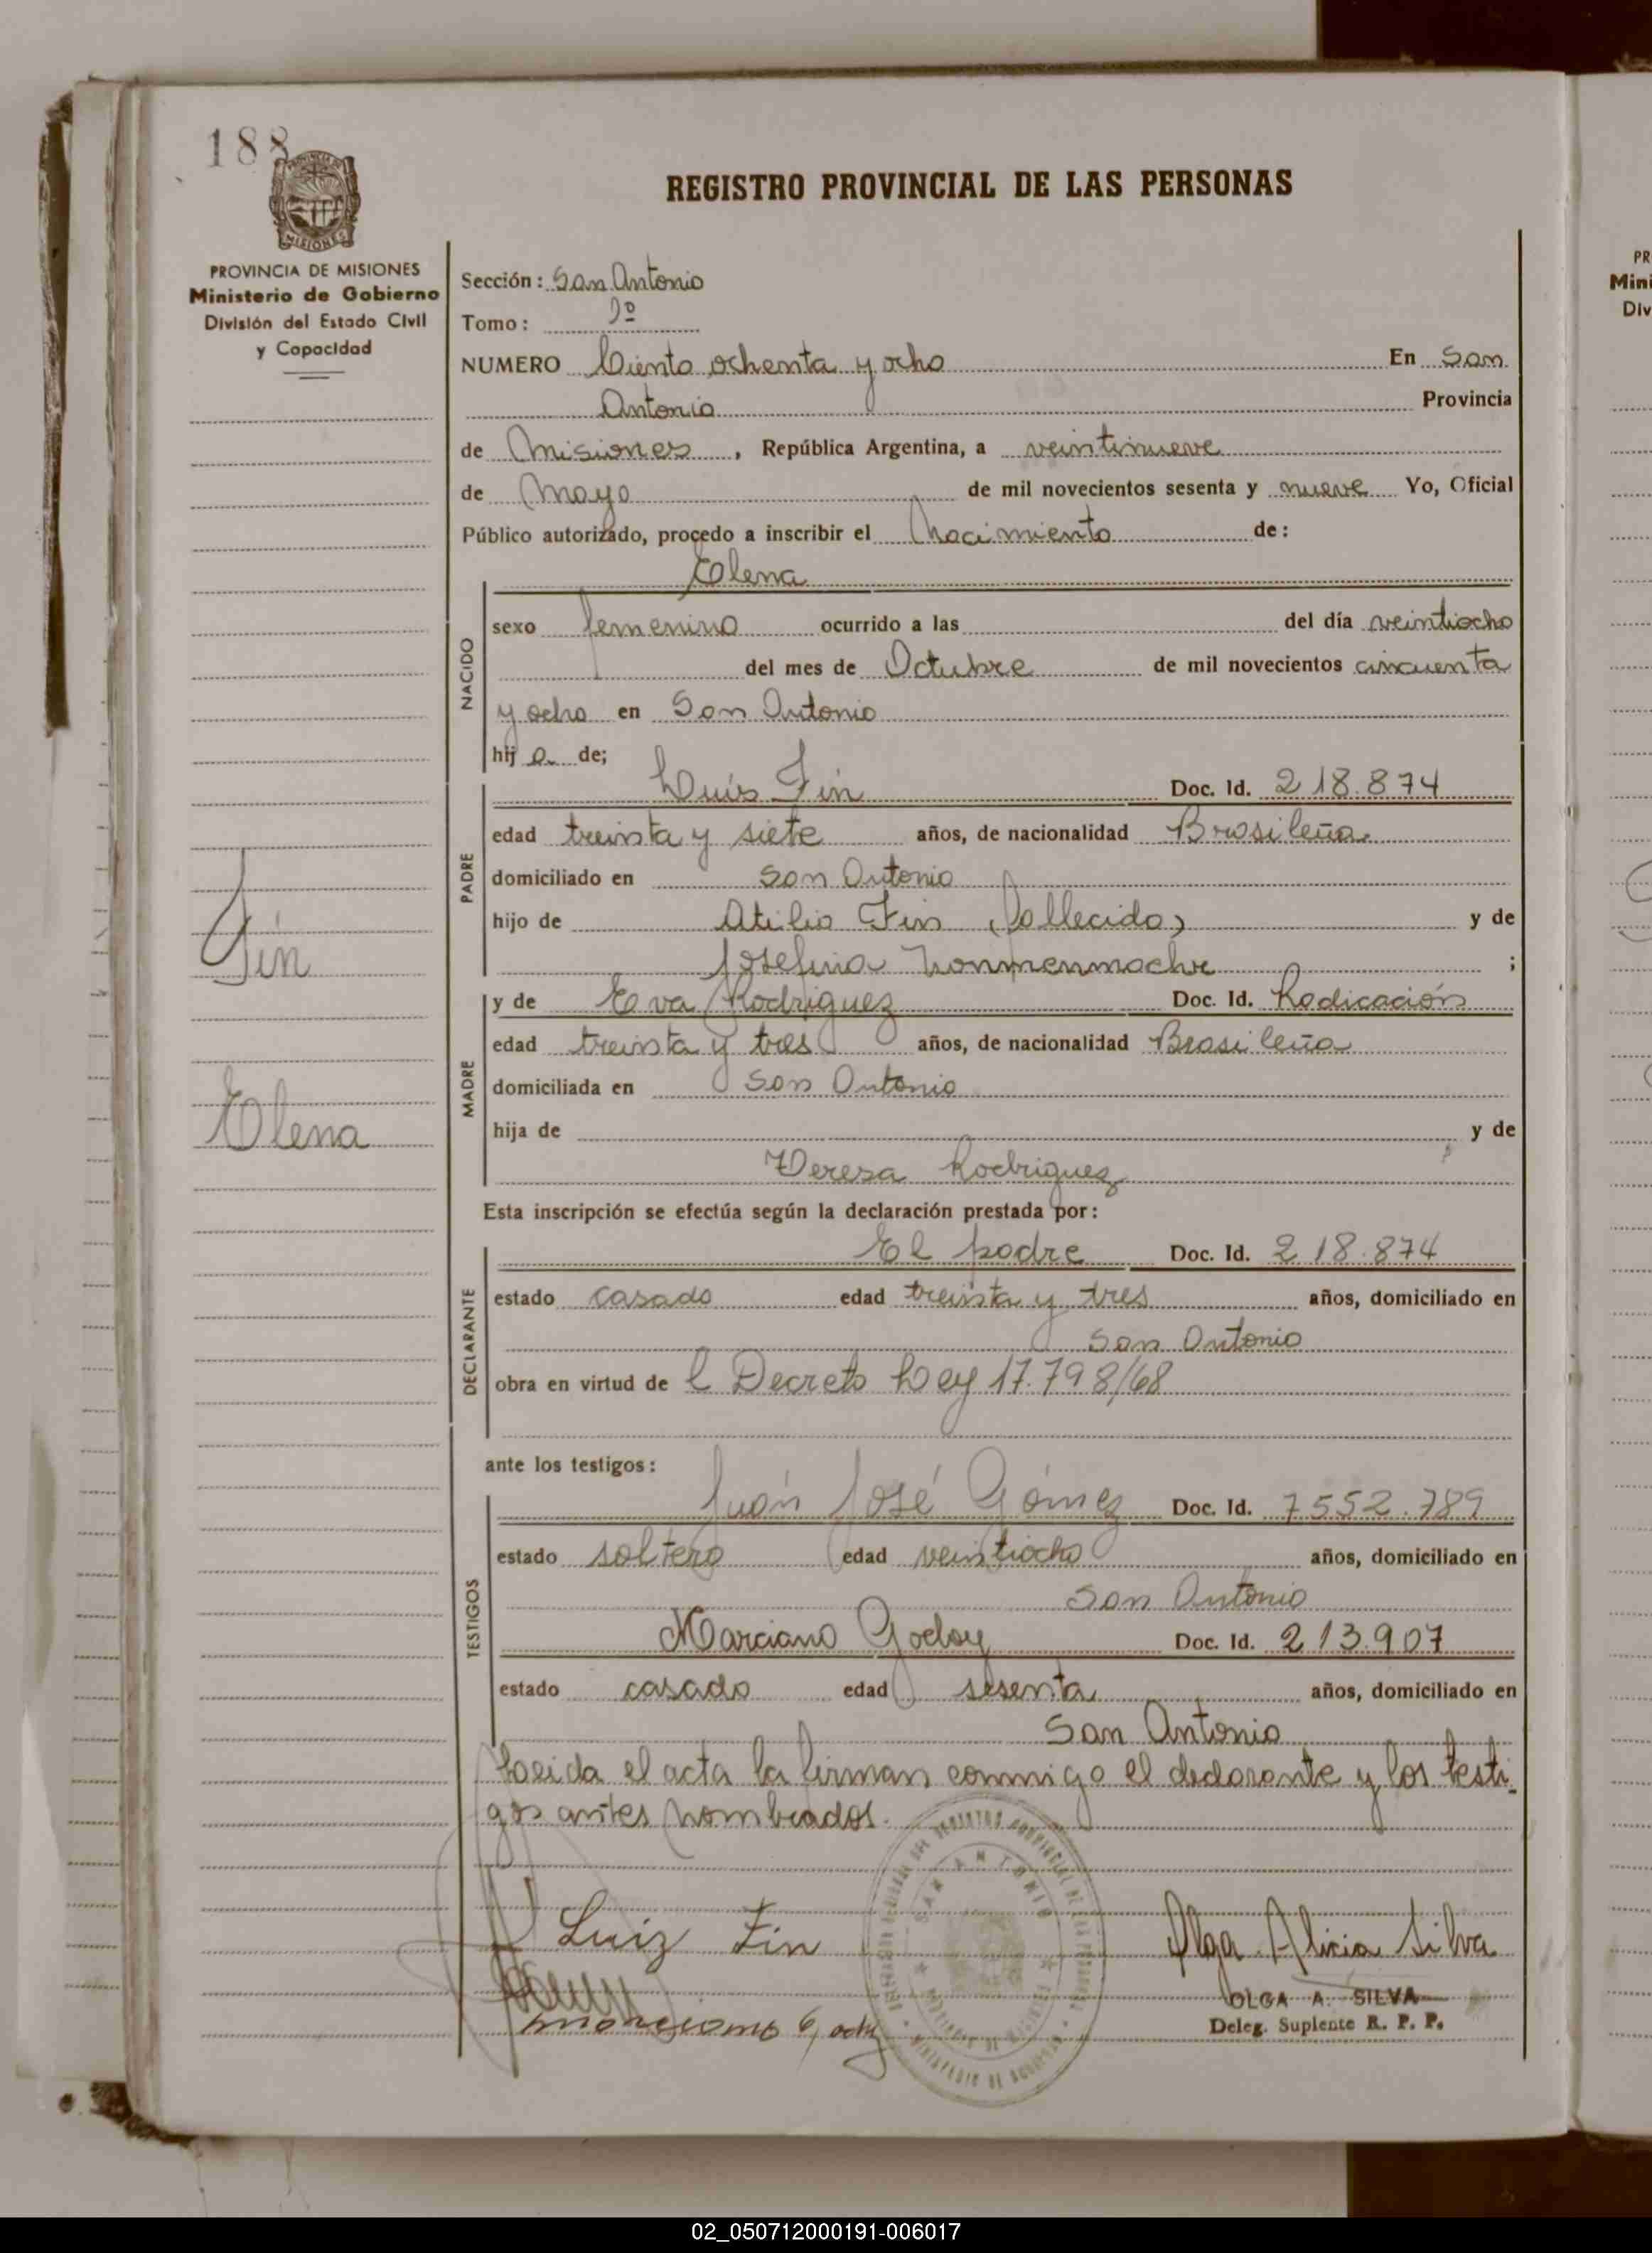 188
PROVINCIA DE MISIONES
Ministerio de Gobierno
División del Estado Civil
y Capacidad
REGISTRO PROVINCIAL DE LAS PERSONAS
Sección: San Antonio
Tomo: 1º
NUMERO Ciento ochenta y ocho En San
Antonio Provincia
de Misiones, República Argentina, a veintinueve
de Mayo de mil novecientos sesenta y nueve Yo, Oficial
Público autorizado, procedo a inscribir el Nacimiento de:
Elena
NACIDO
sexo femenino ocurrido a las del día veintiocho
del mes de Octubre de mil novecientos cincuenta
y ocho en San Antonio
hija de;
PADRE
Luis Fin Doc. Id. 218.874
edad treinta y siete años, de nacionalidad Brasileña
domiciliado en San Antonio
hijo de Atilio Fin (fallecido) y de
Josefina ;
MADRE
y de Eva Rodriguez Doc. Id. Radicación
edad treinta y tres años, de nacionalidad Brasileña
domiciliada en San Antonio
hija de y de
Teresa Rodriguez
Fin
Elena
Esta inscripción se efectúa según la declaración prestada por:
DECLARANTE
El padre Doc. Id. 218.874
estado casado edad treinta y tres años, domiciliado en
San Antonio
obra en virtud de l Decreto Ley 17.798/68
ante los testigos:
TESTIGOS
Juán José Gómez Doc. Id. 7552.789
estado soltero edad veintiocho años, domiciliado en
San Antonio
Marciano Godoy Doc. Id. 213.907
estado casado edad sesenta años, domiciliado en
San Antonio
Leida el acta la firman conmigo el declarante y los testi-
gos antes nombrados.
SAN ANTONIO
Luiz Fin
Olga Alicia Silva
OLGA A. SILVA
Deleg. Suplente R. P. P.
02_050712000191-006017